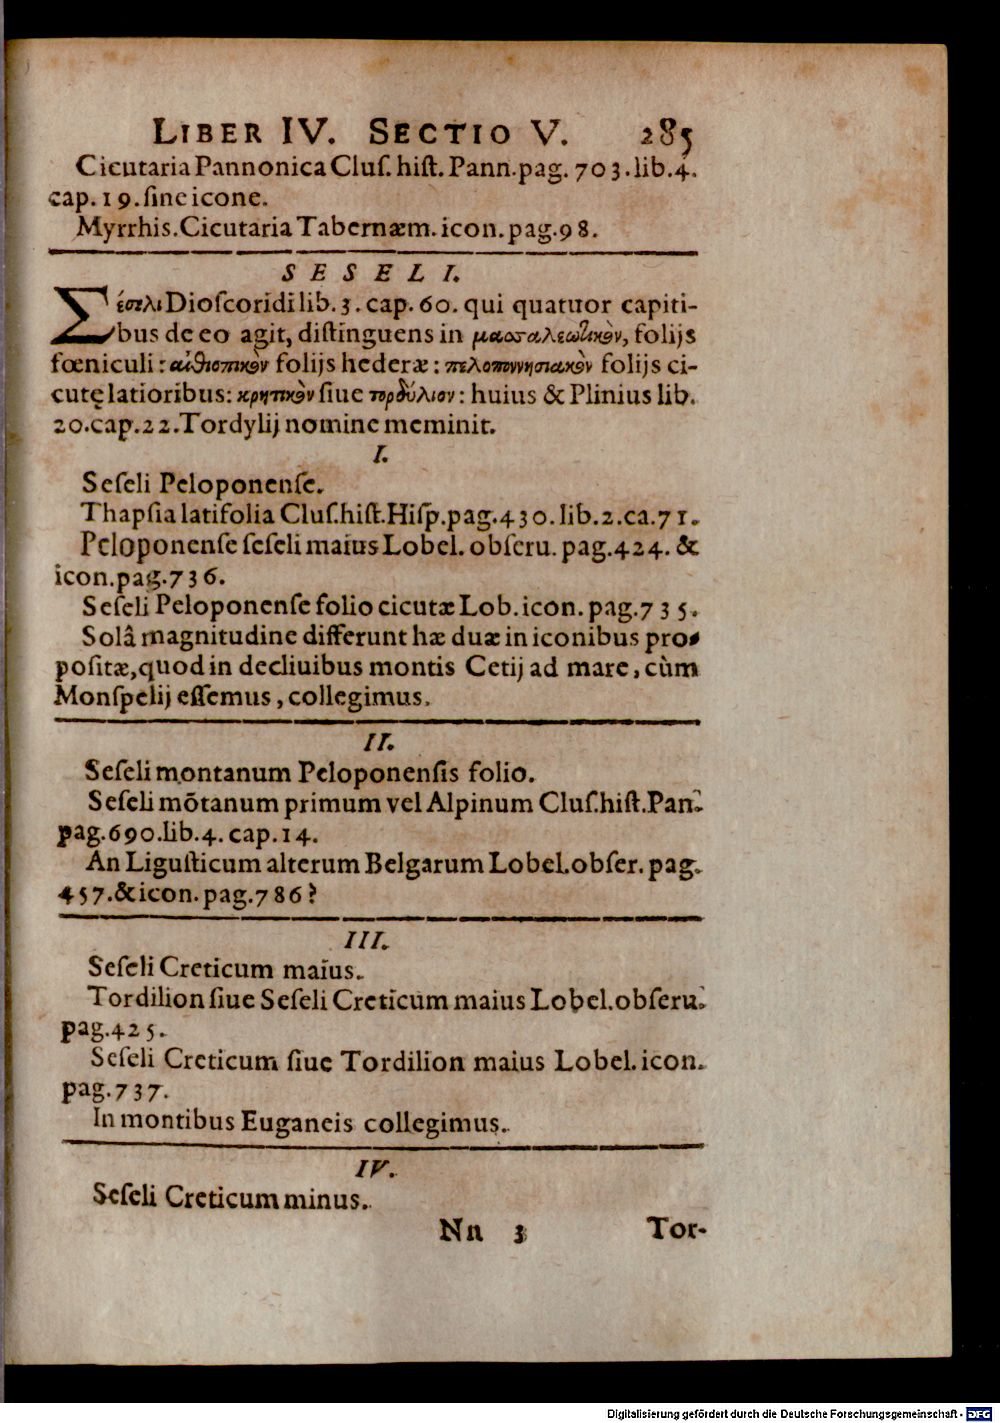 LIBER IV. SECTIO V. 285
Cicutaria Pannonica Cluſ. hiſt. Pann. pag. 703. lib. 4.
cap. 19. ſine icone.
Myrrhis. Cicutaria Tabernæm. icon. pag. 98.
SESELI.
Σέσελι Dioſcoridi lib. 3. cap. 60. qui quatuor capiti-
bus de eo agit, diſtinguens in μασσαλεωτικὸν, folijs
fœniculi: αἰθιοπικὸν folijs hederæ: πελοποννησιακὸν folijs ci-
cutę latioribus: κρητικὸν ſiue τορδύλιον: huius & Plinius lib.
20. cap. 22. Tordylij nomine meminit.
I.
Seſeli Peloponenſe.
Thapſia latifolia Cluſ. hiſt. Hiſp. pag. 430. lib. 2. ca. 71.
Peloponenſe ſeſeli maius Lobel. obſeru. pag. 424. &
icon. pag. 736.
Seſeli Peloponenſe folio cicutæ Lob. icon. pag. 735.
Solâ magnitudine differunt hæ duæ in iconibus pro-
poſitæ, quod in decliuibus montis Cetij ad mare, cùm
Monſpelij eſſemus, collegimus.
II.
Seſeli montanum Peloponenſis folio.
Seſeli mõtanum primum vel Alpinum Cluſ. hiſt. Pan.
pag. 690. lib. 4. cap. 14.
An Liguſticum alterum Belgarum Lobel. obſer. pag.
457. & icon. pag. 786?
III.
Seſeli Creticum maius.
Tordilion ſiue Seſeli Creticum maius Lobel. obſeru.
pag. 425.
Seſeli Creticum ſiue Tordilion maius Lobel. icon.
pag. 737.
In montibus Euganeis collegimus.
IV.
Seſeli Creticum minus.
Nn 3 Tor-
Digitalisierung gefördert durch die Deutsche Forschungsgemeinschaft - DFG